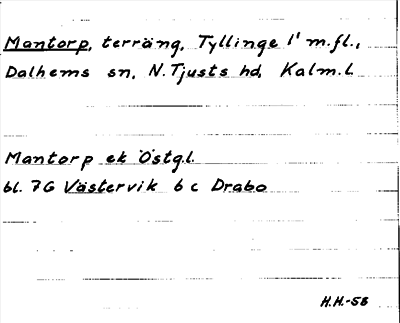 Mantorp, terräng, Tyllinge 1¹ m.fl.,
Dalhems sn, N. Tjusts hd, Kalm. l.
Mantorp ek Östg.l.
bl. 7G Västervik 6 c Drabo
H.H.-58